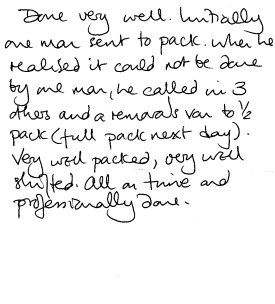 Done very well. Initially
one man sent to pack. When he
realised it could not be done
by one man, he called in 3
others and a removals van to 1/2
pack (full pack next day).
Very well packed, very well
shifted. All on time and
professionally done.